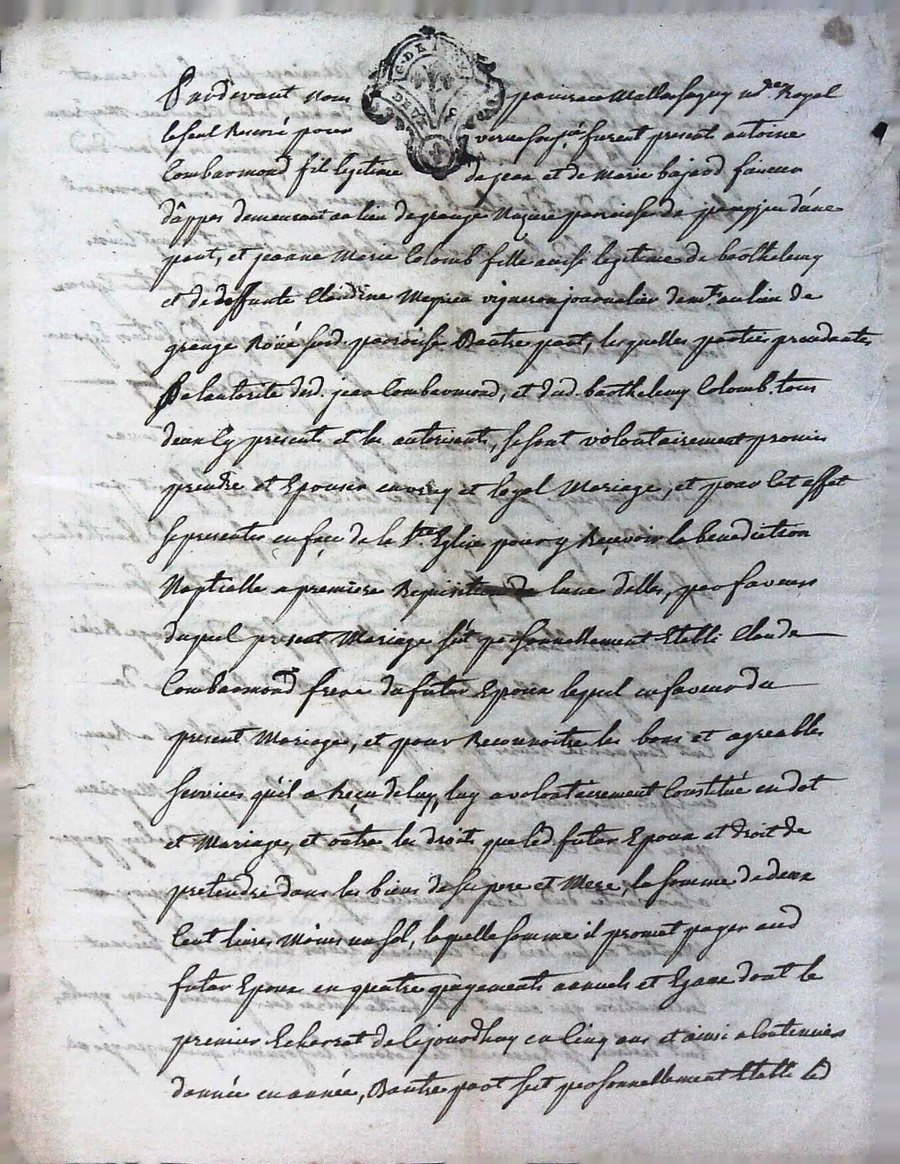 Pardevant Nous
Royal
le seul Reservé pour furent present antoine
Combarmond fils legitime de jean et de Marie bajard faiseur
d'appas demeurant au lieu de grange Nuzure paroisse de d'une
part, et jeanne Marie Colomb fille aussi legitime de barthelemy
et de deffunte Claudine vigneron journalier demt au lieu de
grange Roüé susd. parroisse Dautre part, lesquelles parties procedantes
De lautorité dud. jean Combarmond, et dud. barthelemy Colomb. tous
deux Cy present et les autorisants, se sont volontairement promis
prendre et Epouser en vray et loyal Mariage, et pour Cet effet
se presenter en face de la Ste Eglise pour y Reçevoir la benediction
Nuptialle a premiere Requisition de lune delles, par faveur
duquel present Mariage s'est personnellement Etabli Claude
Combarmond frere du futur Epoux lequel en faveur du
present Mariage, et pour Reconnoitre les bons et agreables
services qu'il a Reçu de luy, luy a volontairement Constitué en dot
et Mariage, et outre les droits que led futur Epoux at droit de
pretendre dans les biens de se pere et Mere, la somme de deux
Cent livres Moins un sol, laquelle somme il promet payer aud
futur Epoux en quatre payements annuels et Egaux dont le
premier Echerrat de Cejourdhuy en Cinq ans et ainsi a Continuer
dannée en année, Dautre part s'est personnellement Etabli led